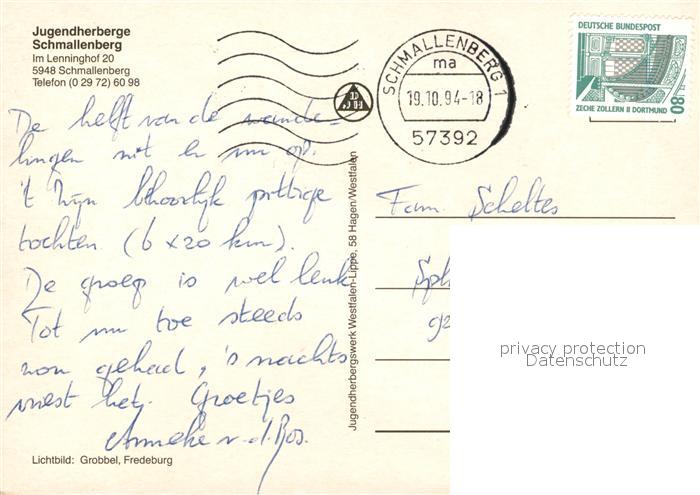 Jugendherberge
Schmallenberg
Im Lenninghof 20
5948 Schmallenberg
Telefon (0 29 72) 60 98
De helft van de wande-
lingen zit er nu op.
't Zijn behoorlijk pittige
tochten. (6 x 20 km).
De groep is wel leuk
Tot nu toe steeds
zon gehad, 's nachts
vriest het. Groetjes
Anneke v.d. Bos.
Lichtbild: Grobbel, Fredeburg
Jugendherbergswerk Westfalen-Lippe, 58 Hagen/Westfalen
SCHMALLENBERG 1
ma
19.10.94-18
57392
DEUTSCHE BUNDESPOST
80
ZECHE ZOLLERN II DORTMUND
Fam. Scheltes
Sph
privacy protection
Datenschutz